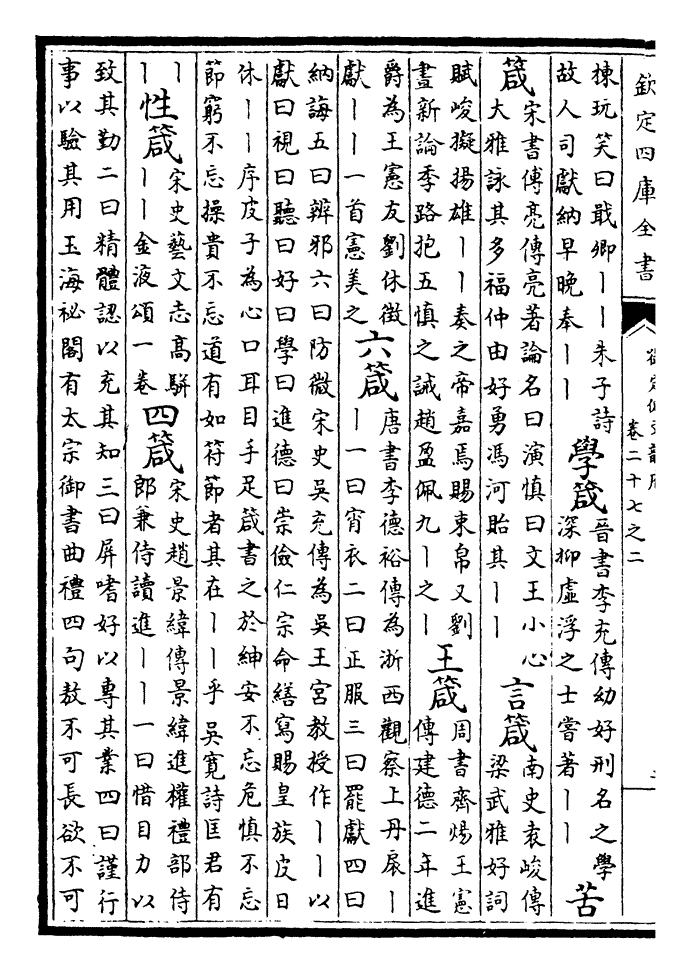 欽定四庫全書
卷二十七之二
楝玩笑曰戢卿丨丨朱子詩
故人司獻納早晚奉丨丨
學箴
晉書李充傳幼好刑名之學
深抑虛浮之士嘗著丨丨
苦
箴
宋書傅亮傳亮著論名曰演慎曰文王小心
大雅詠其多福仲由好勇馮河貽其丨丨
言箴
南史袁峻傳
梁武雅好詞
賦峻擬揚雄丨丨奏之帝嘉焉賜束帛又劉
晝新論季路抱五慎之誡趙盈佩九丨之丨
王箴
周書齊煬王憲
傳建德二年進
爵為王憲友劉休徵
獻丨丨一首憲美之
六箴
唐書李德裕傳為浙西觀察上丹扆丨
丨一曰宵衣二曰正服三曰罷獻四曰
納誨五曰辨邪六曰防微宋史吳充傳為吳王宮教授作丨丨以
獻曰視曰聽曰好曰學曰進德曰崇儉仁宗命繕寫賜皇族皮日
休丨丨序皮子為心口耳目手足箴書之於紳安不忘危慎不忘
節窮不忘操貴不忘道有如符節者其在丨丨乎吳寬詩匡君有
丨
丨
性箴
宋史藝文志高駢
丨丨金液頌一卷
四箴
宋史趙景緯傳景緯進權禮部侍
郎兼侍讀進丨丨一曰惜目力以
致其勤二曰精體認以充其知三曰屏嗜好以專其業四曰謹行
事以驗其用玉海祕閣有太宗御書曲禮四句敖不可長欲不可